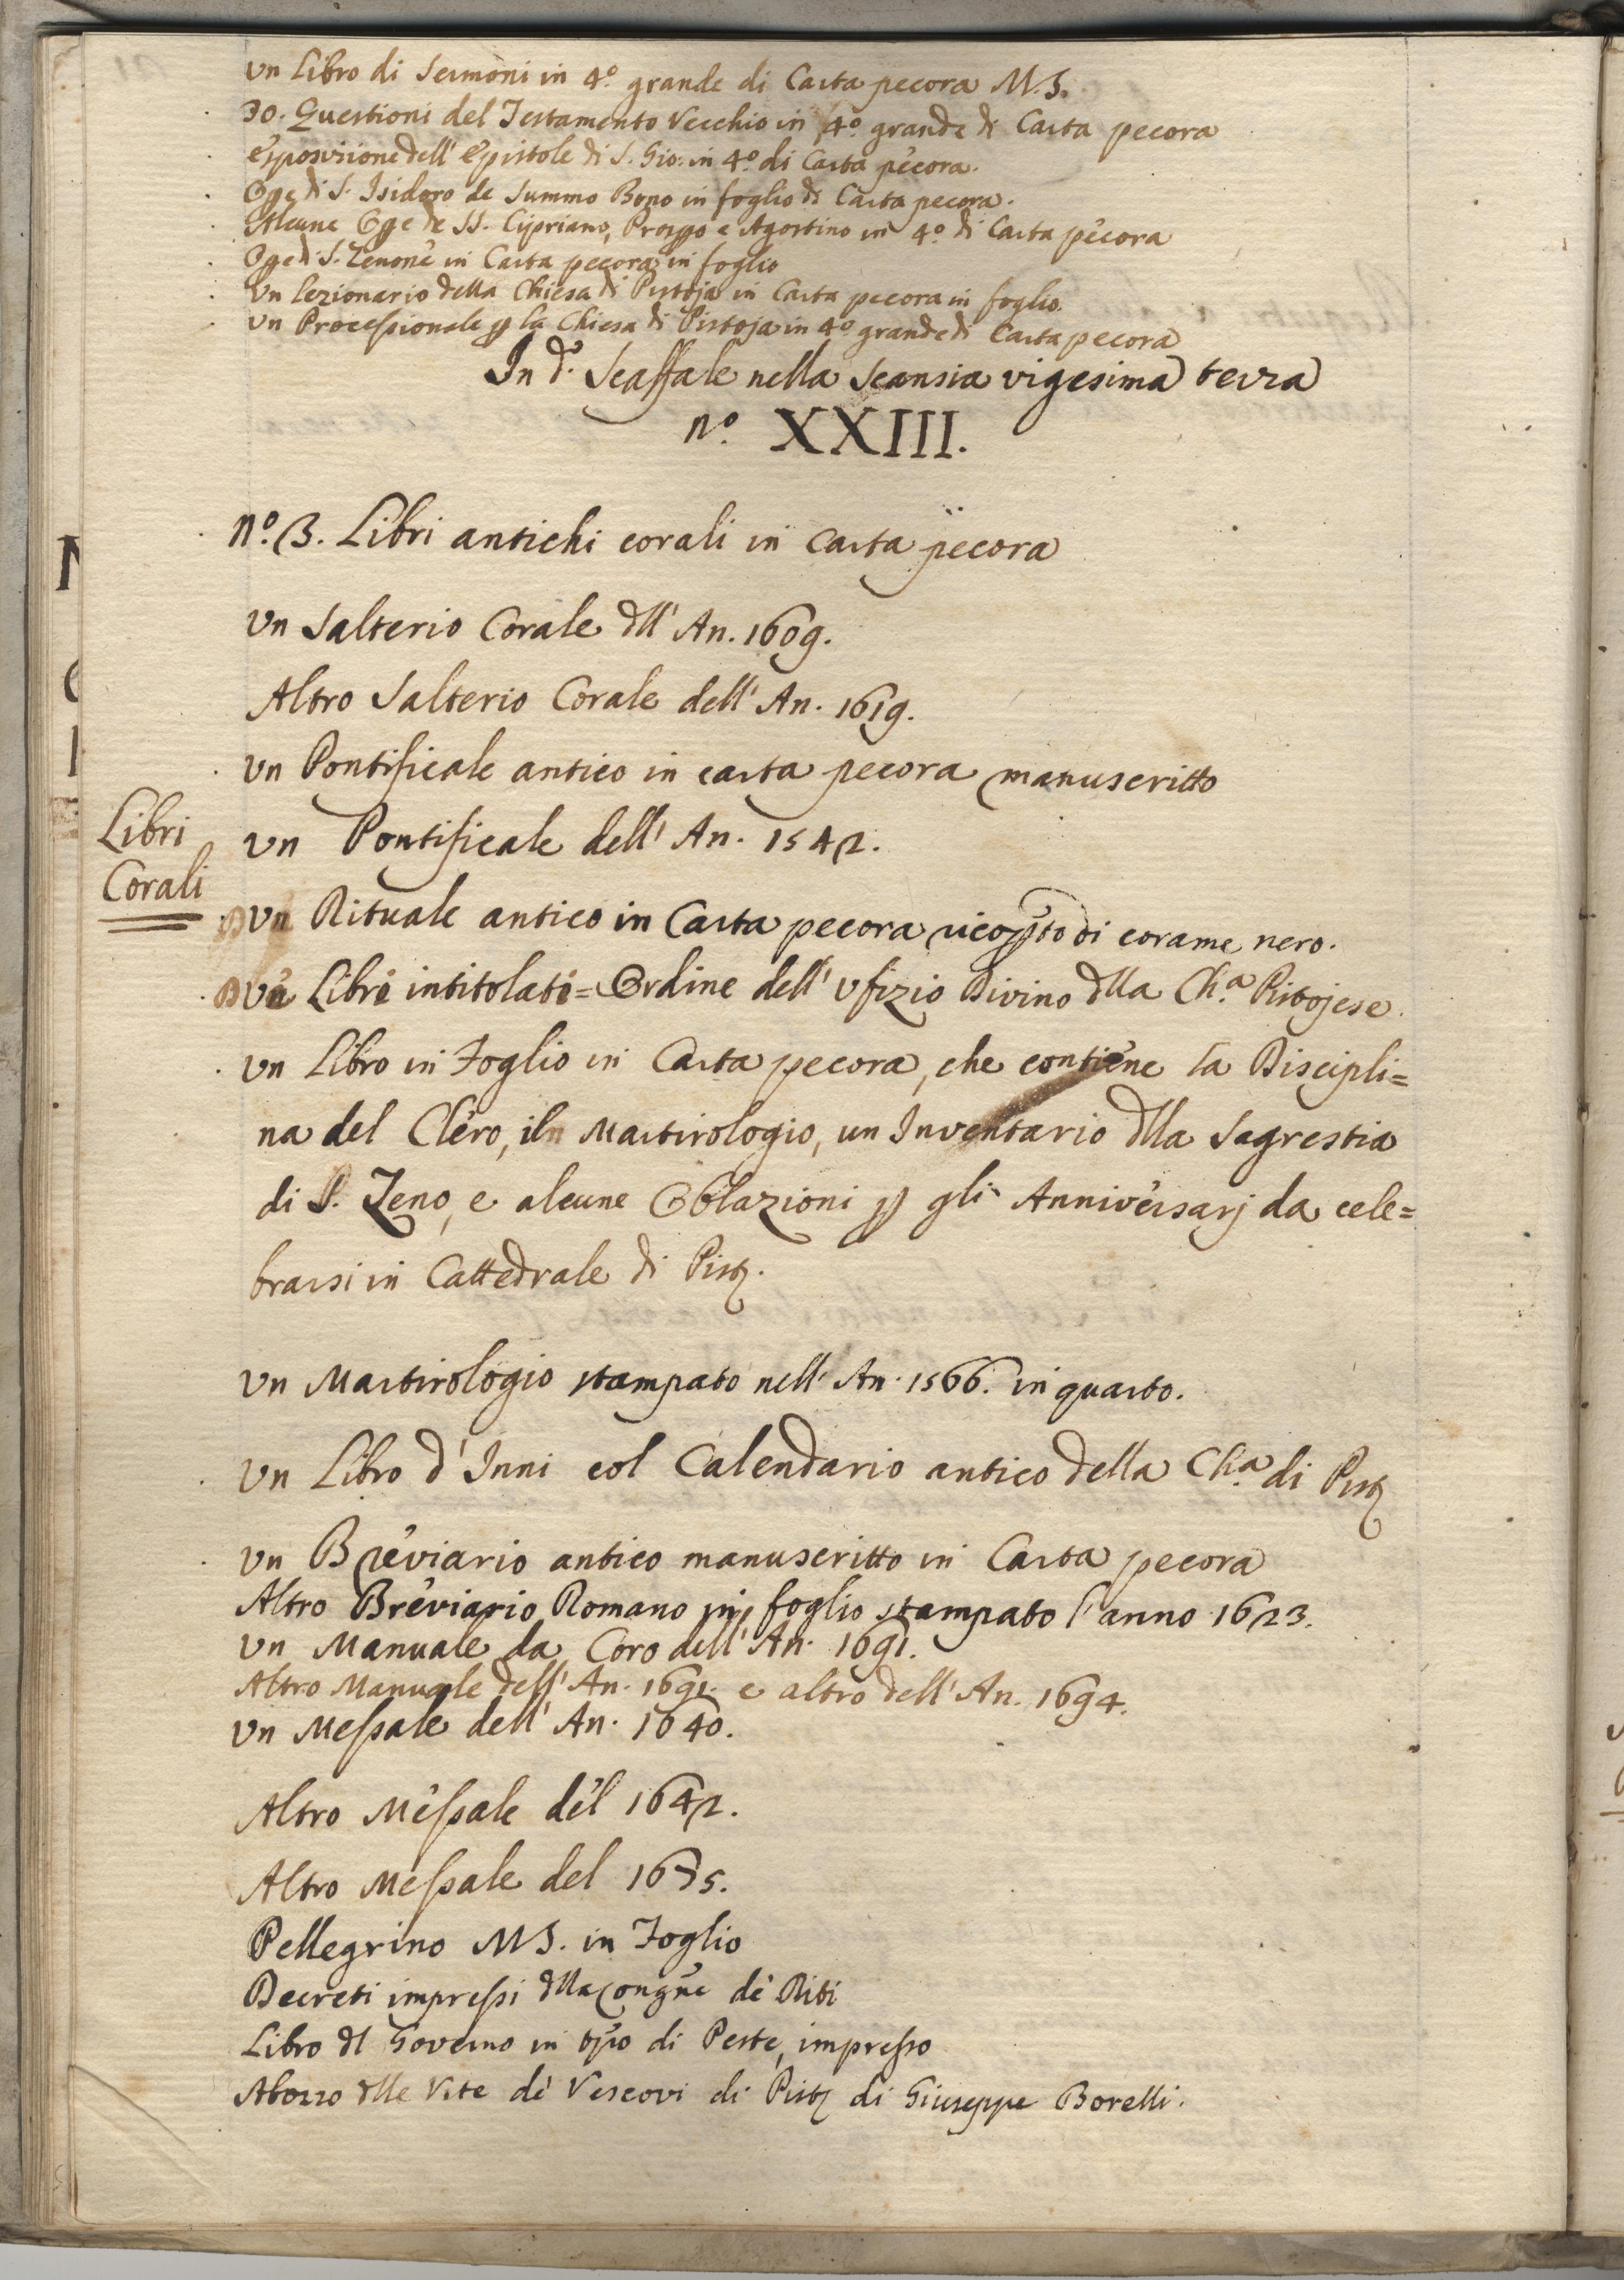 Un Libro di Sermoni in 4º. grande di Carta pecora M.S.
30. Questioni del Testamento Vecchio in 4º. grande di Carta pecora
Esposizione dell' Epistole di S. Gio: in 4º. di Carta pecora.
Ope di S. Isidoro de Summo Bono in foglio di Carta pecora.
Alcune Ope de SS. Cipriano, Prospo e Agostino in 4º. di Carta pecora
Ope di S. Zenone in Carta pecora in foglio
Un Lezionario della Chiesa di Pistoja in Carta pecora in foglio.
Un Processionale p la Chiesa di Pistoja in 4º. grande di Carta pecora
In d.º Scaffale nella Scansia vigesima terza
Nº. XXIII.
Nº. 3. Libri antichi corali in Carta pecora
Un Salterio Corale dll' An. 1609.
Altro Salterio Corale dell' An. 1619.
Un Pontificale antico in carta pecora manuscritto
Libri
Corali
Un Pontificale dell' An. 1542.
Un Rituale antico in Carta pecora ricopto di corame nero.
Due Libri intitolati = Ordine dell' Ufizio Divino dlla Ch.ª Pistojese.
Un Libro in Foglio in Carta pecora, che contiene la Discipli=
na del Clero, il Martirologio, un Inventario dlla Sagrestia
di S. Zeno, e alcune Oblazioni p gli Anniversarj da cele=
brarsi in Cattedrale di Pist.
Un Martirologio stampato nell' An. 1566. in quarto.
Un Libro d' Inni col Calendario antico della Ch.ª di Pist
Un Breviario antico manuscritto in Carta pecora
Altro Breviario Romano in foglio stampato l' anno 1623.
Un Manuale da Coro dell' An. 1691.
Altro Manuale dell' An. 1691. e altro dell' An. 1694.
Un Messale dell' An. 1640.
Altro Messale del 1642.
Altro Messale del 1675.
Pellegrino MS. in Foglio
Decreti impressi dlla Congne de' Riti
Libro dl Governo in tpo di Peste, impresso
Abozzo dlle Vite de' Vescovi di Pist di Giuseppe Borelli.